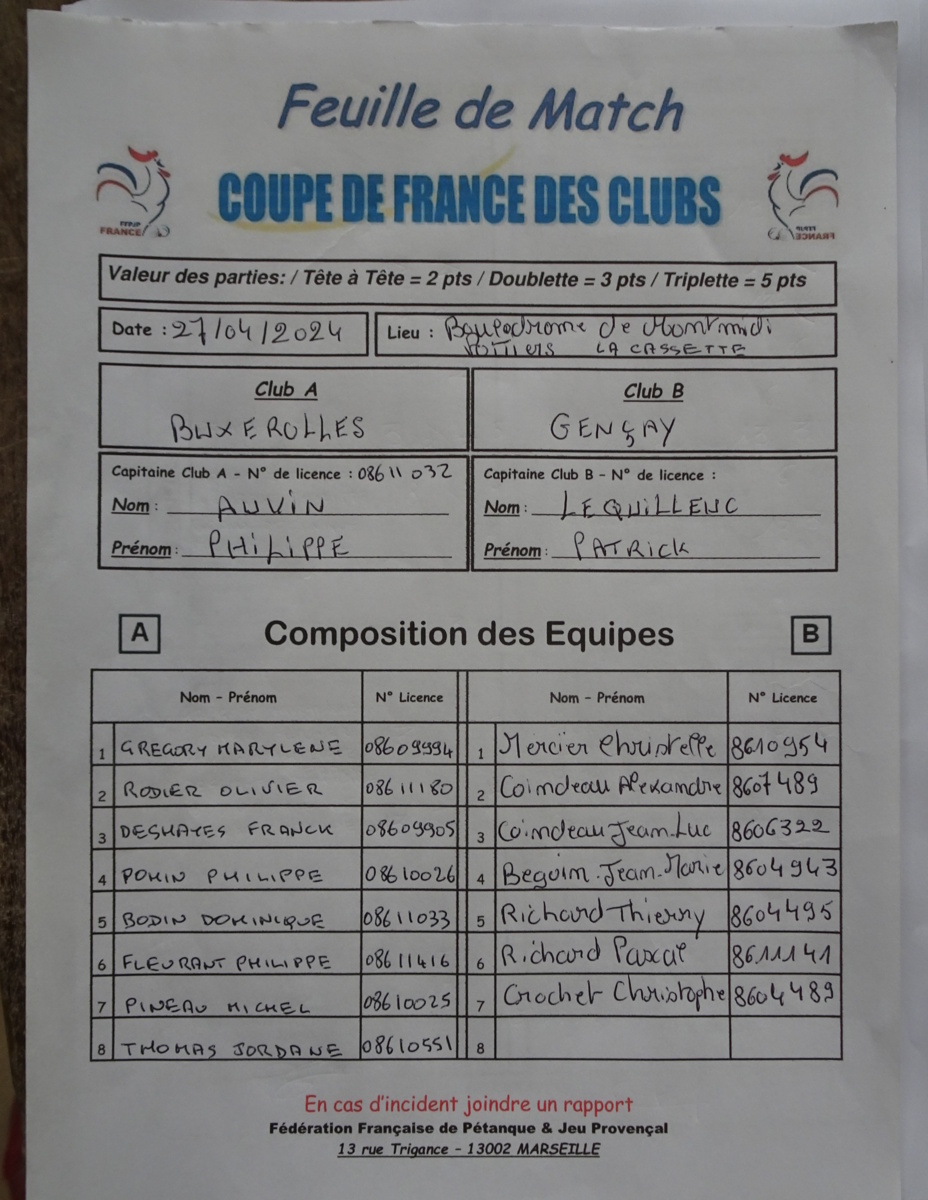 Feuille de Match
COUPE DE FRANCE DES CLUBS
FFPJP
FRANCE
FFPJP
FRANCE
Valeur des parties: / Tête à Tête = 2 pts / Doublette = 3 pts / Triplette = 5 pts
Date : 27/04/2024
Lieu : Boulodrome de Montmidi
POITIERS LA CASSETTE
Club A
BUXEROLLES
Club B
GENÇAY
Capitaine Club A - N° de licence : 08611032
Nom : AUVIN
Prénom : PHILIPPE
Capitaine Club B - N° de licence :
Nom : LEQUILLEUC
Prénom : PATRICK
A Composition des Equipes B
Nom - Prénom N° Licence Nom - Prénom N° Licence
1 GREGORY MARYLENE 08609994 1 Mercier Christelle 8610954
2 RODIER OLIVIER 08611180 2 Coindeau Alexandre 8607489
3 DESHAYES FRANCK 08609905 3 Coindeau Jean-Luc 8606322
4 POMIN PHILIPPE 08610026 4 Beguin Jean-Marie 8604943
5 BODIN DOMINIQUE 08611033 5 Richard Thierry 8604495
6 FLEURANT PHILIPPE 08611416 6 Richard Pascal 8611141
7 PINEAU MICHEL 08610025 7 Crochet Christophe 8604489
8 THOMAS JORDANE 08610551 8
En cas d'incident joindre un rapport
Fédération Française de Pétanque & Jeu Provençal
13 rue Trigance - 13002 MARSEILLE